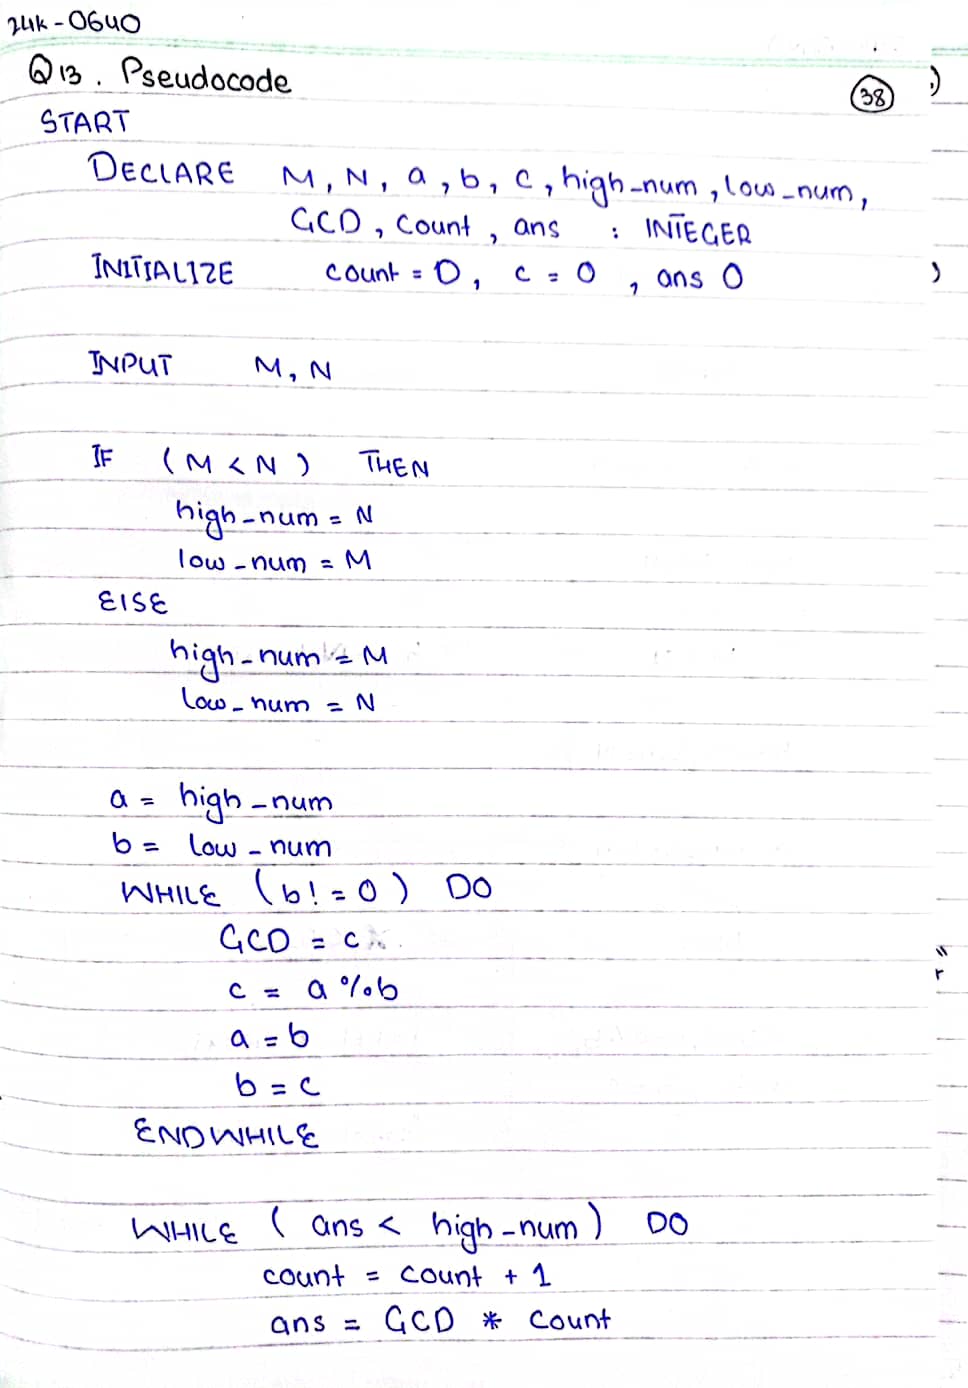 24k-0640
Q13. Pseudocode
38
START
DECLARE M, N, a, b, c, high_num, low_num,
GCD, count, ans : INTEGER
INITIALIZE count = 0, c = 0, ans 0
INPUT M, N
IF (M < N) THEN
high_num = N
low_num = M
ELSE
high_num = M
low_num = N
a = high_num
b = low_num
WHILE (b! = 0) DO
GCD = c
c = a % b
a = b
b = c
ENDWHILE
WHILE (ans < high_num) DO
count = count + 1
ans = GCD * count